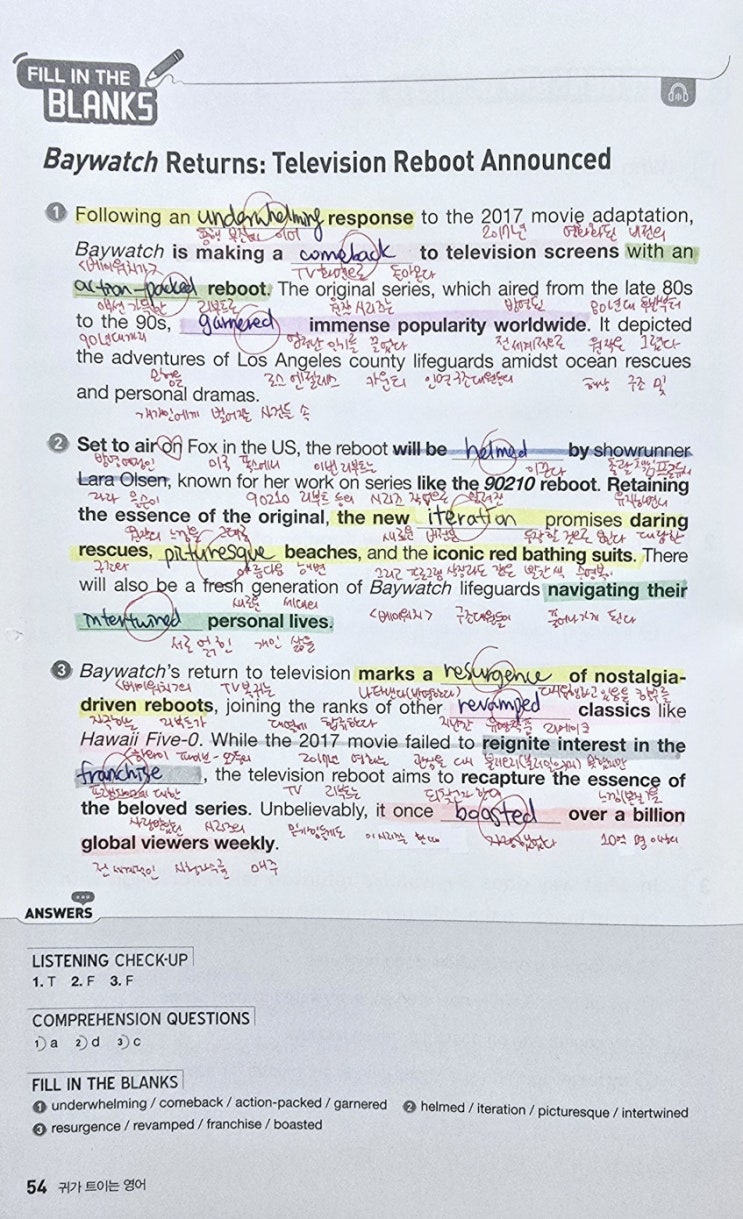 FILL IN THE
BLANKS
Baywatch Returns: Television Reboot Announced
1 Following an underwhelming response to the 2017 movie adaptation,
2017년
Baywatch is making a comeback to television screens with an
<베이워치>가 TV화면으로 돌아온다
action-packed reboot. The original series, which aired from the late 80s
액션 가득한 리부트로 원작 시리즈는 방영된 80년대 후반부터
to the 90s, garnered immense popularity worldwide. It depicted
90년대까지 엄청난 인기를 끌었다 전세계적으로 원작은 그렸다
the adventures of Los Angeles county lifeguards amidst ocean rescues
로스 엔젤레스 카운티 인명구조대원들의 해상 구조 및
and personal dramas.
벌어지는 사건들 속
2 Set to air on Fox in the US, the reboot will be helmed by showrunner
방영예정인 미국 폭스에서 이번 리부트는 이끈다
Lara Olsen, known for her work on series like the 90210 reboot. Retaining
라라 올슨이 90210 리부트 등의 시리즈 작업으로 알려진
the essence of the original, the new iteration promises daring
새로운 버전은 대담한
rescues, picturesque beaches, and the iconic red bathing suits. There
구조와 아름다운 해변 그리고 빨간색 수영복이
will also be a fresh generation of Baywatch lifeguards navigating their
새로운 세대의 <베이워치> 구조대원들이
intertwined personal lives.
서로 얽힌 개인 삶을
3 Baywatch's return to television marks a resurgence of nostalgia-
<베이워치>의 TV복귀는
driven reboots, joining the ranks of other revamped classics like
리부트가 대열에 합류하다
Hawaii Five-0. While the 2017 movie failed to reignite interest in the
2017년 영화는
franchise, the television reboot aims to recapture the essence of
대한 TV 리부트는
the beloved series. Unbelievably, it once boasted over a billion
사랑받았던 시리즈의 믿기힘들게도 10억 명 이상의
global viewers weekly.
전 세계적인 시청자수를 매주
ANSWERS
LISTENING CHECK-UP
1. T 2. F 3. F
COMPREHENSION QUESTIONS
1) a 2) d 3) c
FILL IN THE BLANKS
1 underwhelming / comeback / action-packed / garnered 2 helmed / iteration / picturesque / intertwined
3 resurgence / revamped / franchise / boasted
54 귀가 트이는 영어